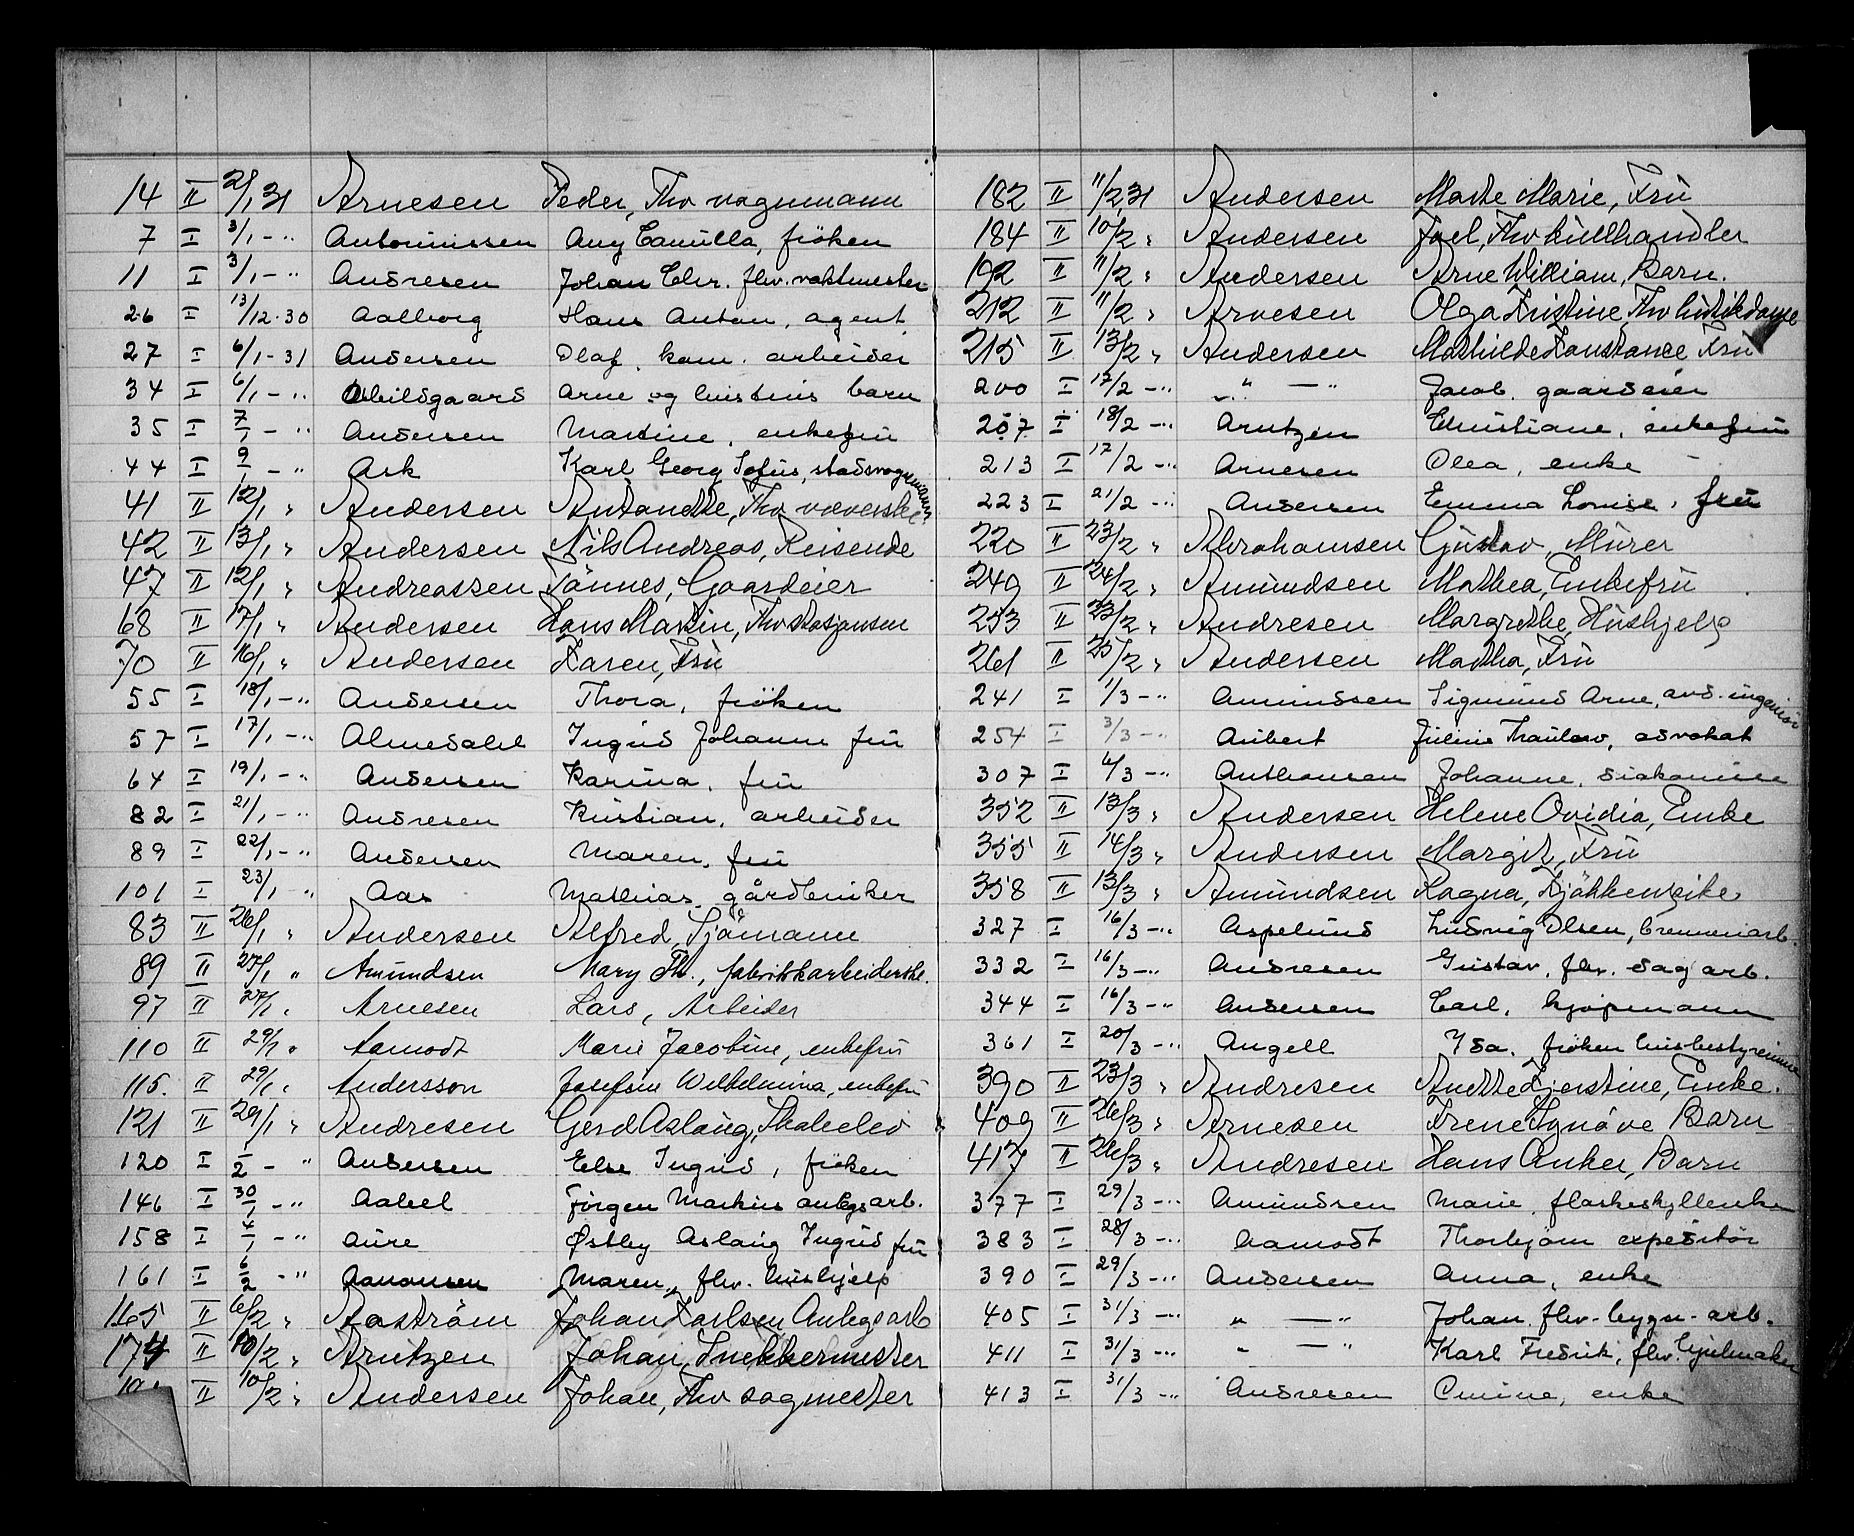 14 II 2/1 31 Arnesen Peder, Fhv vognmann
7 I 3/1 - " Antonnissen Aug Camilla, frøken
11 I 3/1 - " Andresen Johan Chr. fhv. vaktmester
26 I 13/12-30 Aalborg Hans Anton, agent
27 I 6/1-31 Andersen Olaf, kom. arbeider
34 I 6/1 - " Abildgaard Arne og hustrus barn
35 I 7/1 - " Andersen Martine, enkefru
44 I 9/1 - " Ask Karl Georg Sofus, stadsvognmann
41 II 12/1 " Andersen Antonette, Fhv væverske
42 II 13/1 " Andersen Nils Andreas, Reisende
47 II 12/1 " Andreassen Tønnes, Gaardeier
68 II 17/1 " Andersen Hans Martin, Fhv
70 II 16/1 " Andersen Karen, Fru
55 I 18/1 - " Andersen Thora, frøken
57 I 17/1 - " Almedahl Ingrid Johanne fru
64 I 19/1 - " Andersen Karina, fru
82 I 21/1 - " Andresen Kristian, arbeider
89 I 22/1 - " Andersen Maren, fru
101 I 23/1 " Aas Mathias, gårdbruker
83 II 26/1 " Andersen Alfred, Sjømann
89 II 25/1 " Amundsen Mary Th., fabrikkarbeiderske.
97 II 27/1 " Arnesen Lars, Arbeider
110 II 29/1 " Aamodt Marie Jacobine, enkefru
115. II 29/1 " Andersson Josefine Wilhelmina, enkefru
121 II 29/1 " Andresen Gerd Aslaug, Skoleelev
120 I 1/2 - " Andersen Else Ingrid, frøken
146 I 30/1 - " Aabel Jørgen Markus anlegsarb.
158 I 4/1 - " Aure Østby Aslaug Ingrid fru
161 I 6/2 - " Aanonsen Maren, fhv. hushjelp
165 II 6/2 " Aastrøm Johan Karlsen Anlegsarb
174 II 10/2 " Arntzen Johan, Snekkermester
II 10/2 " Andersen Johan, Fhv sagmester
182 II 11/2 31 Andersen Marte Marie, Fru
184 II 10/2 " Andersen Joel, Fhv kullhandler
192 II 11/2 " Andersen Arne William, Barn.
212 II 11/2 " Arnesen Olga Kristine, Fhv butikdame
215 II 13/2 " Andersen Mathilde Konstance Fru
200 I 17/2 - " " — " Jacob, gaardeier
207 I 18/2 - " Arntzen Christiane, enkefru
213 I 17/2 - " Arnesen Olea, enke
223 I 21/2 - " Andersen Emma Lovise, fru
220 II 23/2 " Abrahamsen Gustav, Murer
249 II 24/2 " Amundsen Mathea, Enkefru
253 II 23/2 " Andresen Margrethe, Hushjelp
261 II 25/2 " Andersen Martha, Fru
241 I 1/3 - " Amundsen Sigmund Arne, avd. ingeniør
254 I 3/3 - " Aubert Julius Thaulow, advokat
307 I 6/3 - " Anthonsen Johanne, diakonisse
352 II 13/3 " Andersen Helene Ovidia, Enke
355 II 14/3 " Andersen Margit, Fru
358 II 13/3 " Amundsen Ragna, Kjøkkenpike
327 I 16/3 - " Aspelund Ludvig Olsen, brenneriarb.
332 I 16/3 - " Andresen Gustav, fhv. sagarb.
344 I 16/3 - " Andersen Carl, kjøpmann
361 I 20/3 - " Angell Ysa, frøken husbestyrerinne
390 II 23/3 " Andresen Anette Kjerstine, Enke.
409 II 26/3 " Arnesen Irene Synøve Barn
417 II 26/3 " Andresen Hans Anker, Barn
377 I 29/3 - " Amundsen Marie, flaskeskyllerske
383 I 28/3 - " Aamodt Thorbjørn expeditør
390 I 29/3 - " Andersen Anna, enke
405 I 31/3 - " " — " Johan, fhv. bygn. arb.
411 I 31/3 - " " — " Karl Fredrik, fhv. hjulmaker
413 I 31/3 - " Andresen Emine, enke